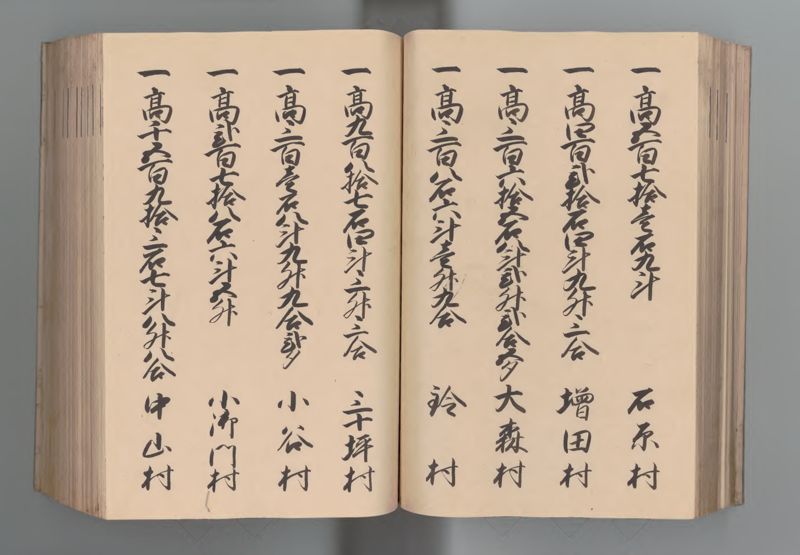 一高五百七拾壱石九斗 石原村
一高四百弐拾石四斗九升三合 増田村
一高三百六拾五石八斗弐升弐合五夕 大森村
一高三百八石六斗壱升九合 鈴村
一高九百八拾七石四斗三升三合 三十坪村
一高三百壱石八斗九升九合弐夕 小谷村
一高弐百七拾八石六斗五升 小御門村
一高千五百九拾三石七斗八升八合 中山村